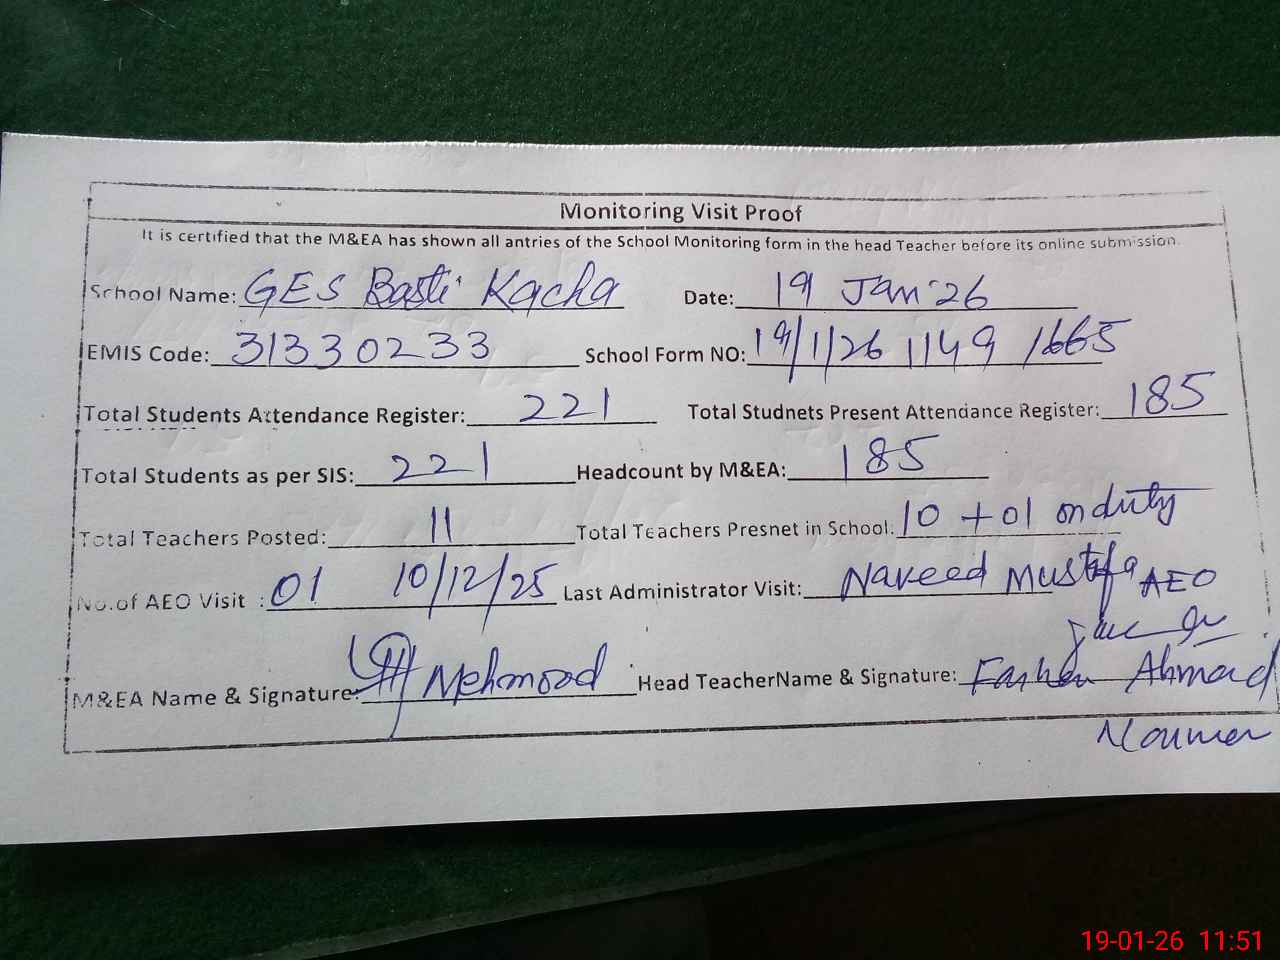 Monitoring Visit Proof
It is certified that the M&EA has shown all antries of the School Monitoring form in the head Teacher before its online submission.
School Name: GES Basti Kacha Date: 19 Jan 26
EMIS Code: 31330233 School Form NO: 19/1/26 1149 1665
Total Students Attendance Register: 221 Total Studnets Present Attendance Register: 185
Total Students as per SIS: 221 Headcount by M&EA: 185
Total Teachers Posted: 11 Total Teachers Presnet in School: 10 + 01 on duty
No.of AEO Visit : 01 10/12/25 Last Administrator Visit: Naveed Mustafa AEO
M&EA Name & Signature: Mehmood Head TeacherName & Signature: Ahmad
19-01-26 11:51